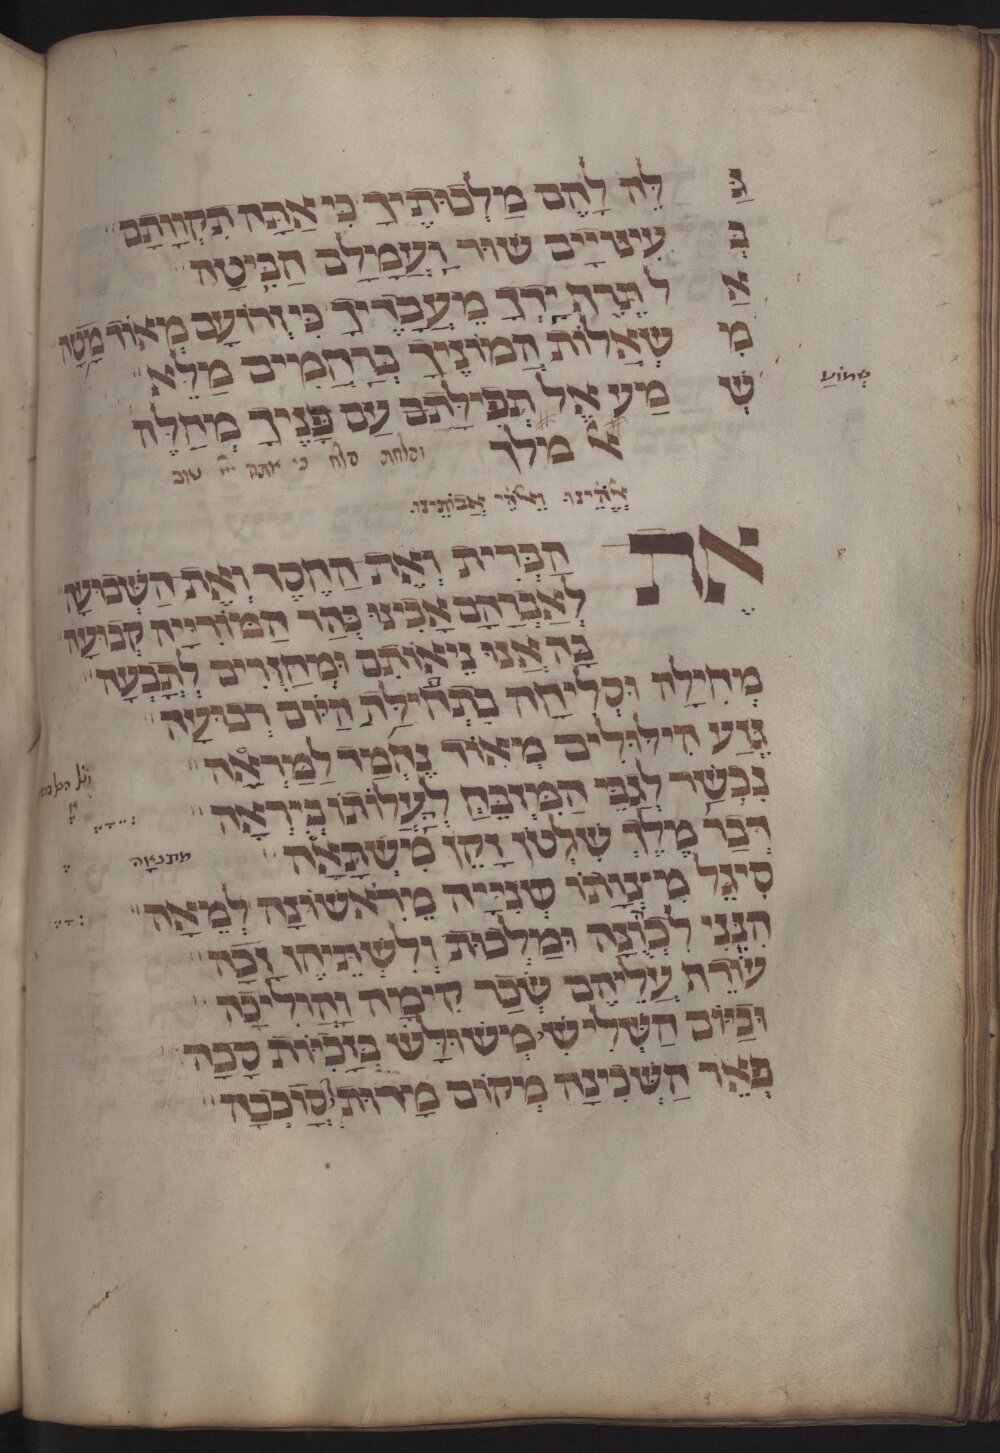 גַּ לֵּה לָהֶם מַלְכוּתֶיךָ כִּי אַתָּה תִקְוָותָם
בְּ עִינְיָים שׁוּר וַעֲמָלָם הַבִּיטָה
אַ ל תֶּרֶף יָדְךָ מֵעֲבָדֶיךָ כִּי זְרוֹעָם מְאוֹד מָטָה
מִ שְׁאֲלוֹת הֲמוֹנֶיךָ בְּרַחֲמִים מַלֵּא
שְׁ מַע אֶל תְּפִילָּתָם עַם פָּנֶיךָ מְחַלֶּה
שְׁמוֹעַ
אל מלך
וסלחת סלח כי אתה יי׳ טוב
אֱלֹהֵינוּ וֵאלֹהֵי אֲבוֹתֵינוּ
אֶת הַבְּרִית וְאֶת הַחֶסֶד וְאֶת הַשְּׁבוּעָה
לְאַבְרָהָם אָבִינוּ בְּהַר הַמּוֹרִיָּיה קְבוּעָה
בָּהּ אָנוּ נֵיאוֹתִם וּמְחַזְּרִים לְתָבְעָהּ
מְחִילָה וּסְלִיחָה בִּתְחִילַּת הַיּוֹם רְבוּעָה
גֶּזַע הִילּוּלִים מְאוֹד נֶחְמַד לְמַרְאֶה
נִכְשַׁר לְגַבֵּי הַמִּזְבֵּחַ לְעֲלוֹתוֹ בְּיִרְאָה
דְּבַר מֶלֶךְ שִׁלְטוֹן וְקֵן מִשְׁתָּאֶה
מתנאה
סִיגֵּל מִיצְוֹתוֹ שְׁנִיָּיה מֵרִאשׁוֹנָה לְמֵאָה
הִנְנִי לִכְהוּנָּה וּמַלְכוּת וְלִשְׁתֵּיהֶן זָכָה
עוֹרֵת עֲלֵיהֶם שְׂכַר קִימָה וַהֲלִיכָה
וּבַיּוֹם הַשְּׁלִישִׁי מְשׁוּלָּשׁ בְּזָכִיּוֹת סָכָה
פְּאֵר הַשְּׁכִינָה מְקוֹם